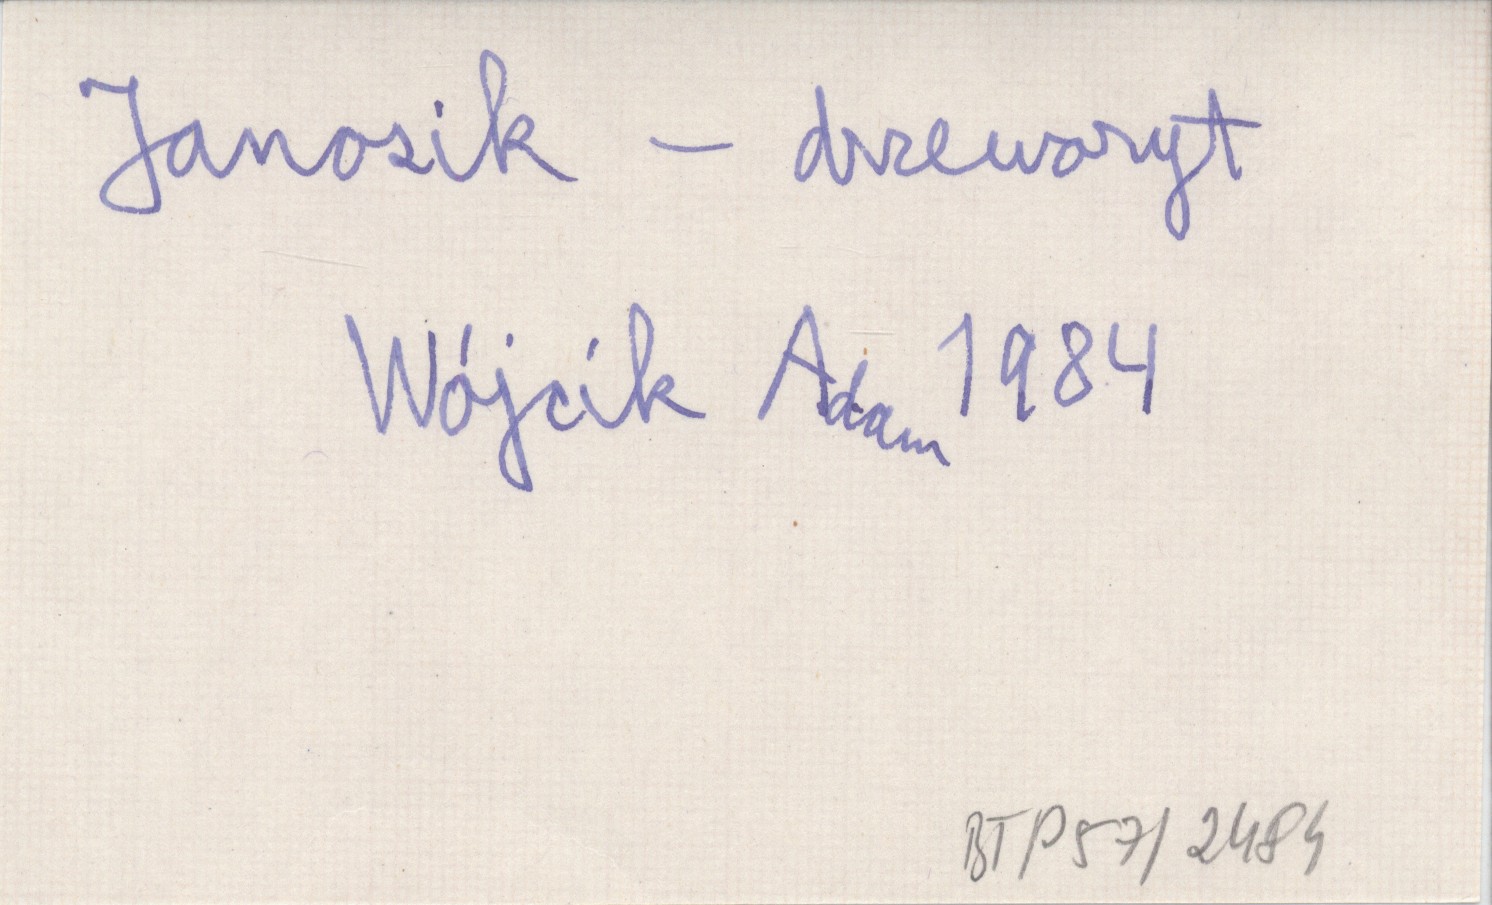 Janosik – drzeworyt
Wójcik Adam 1984
BTP57/2484